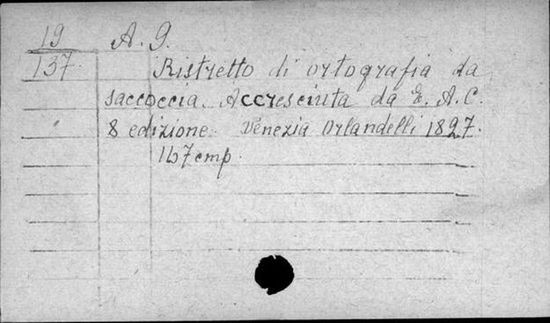 19 A. G.
137. Ristretto di ortografia da
saccoccia. Accresciuta da E. A. C.
8 edizione. Venezia Orlandelli 1827.